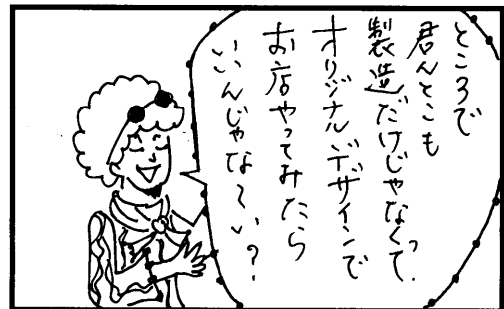 ところで
君んとこも
製造だけじゃなくって
オリジナルデザインで
お店やってみたら
いいんじゃな〜い？